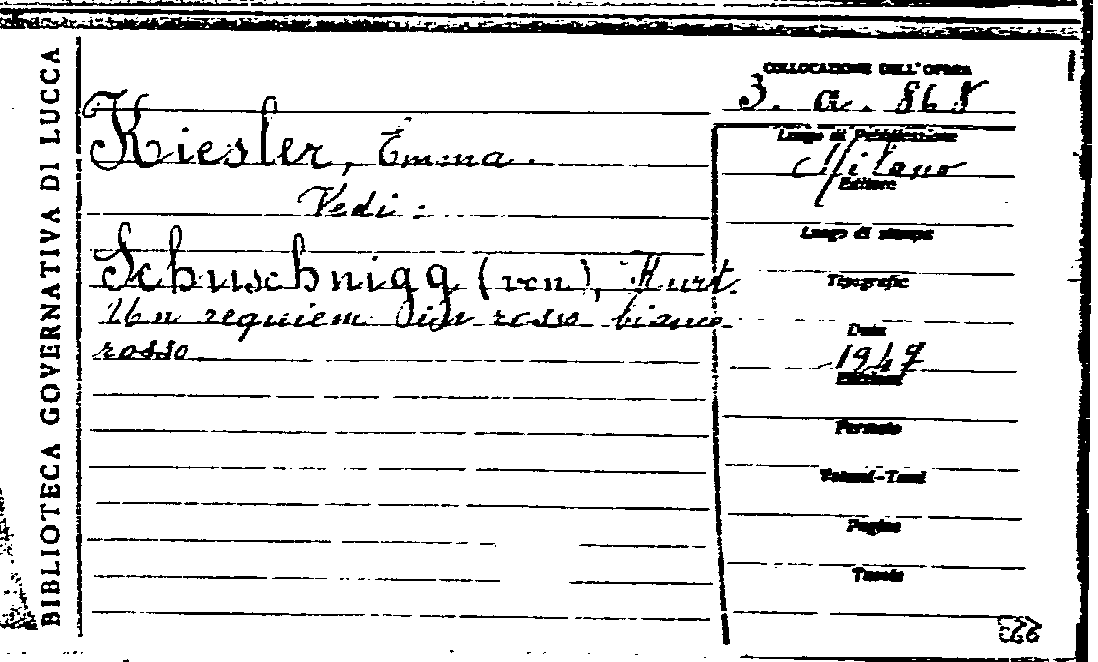 BIBLIOTECA GOVERNATIVA DI LUCCA
COLLOCAZIONE DELL'OPERA
3. a. 868
Kiesler, Emma.
Vedi:
Schuschnigg (von), Kurt.
Un requiem in rosso bianco
rosso
Luogo di Pubblicazione
Milano
Editore
Luogo di stampa
Tipografic
Data
1947
Edizione
Formato
Volumi-Tomi
Pagine
Tavole